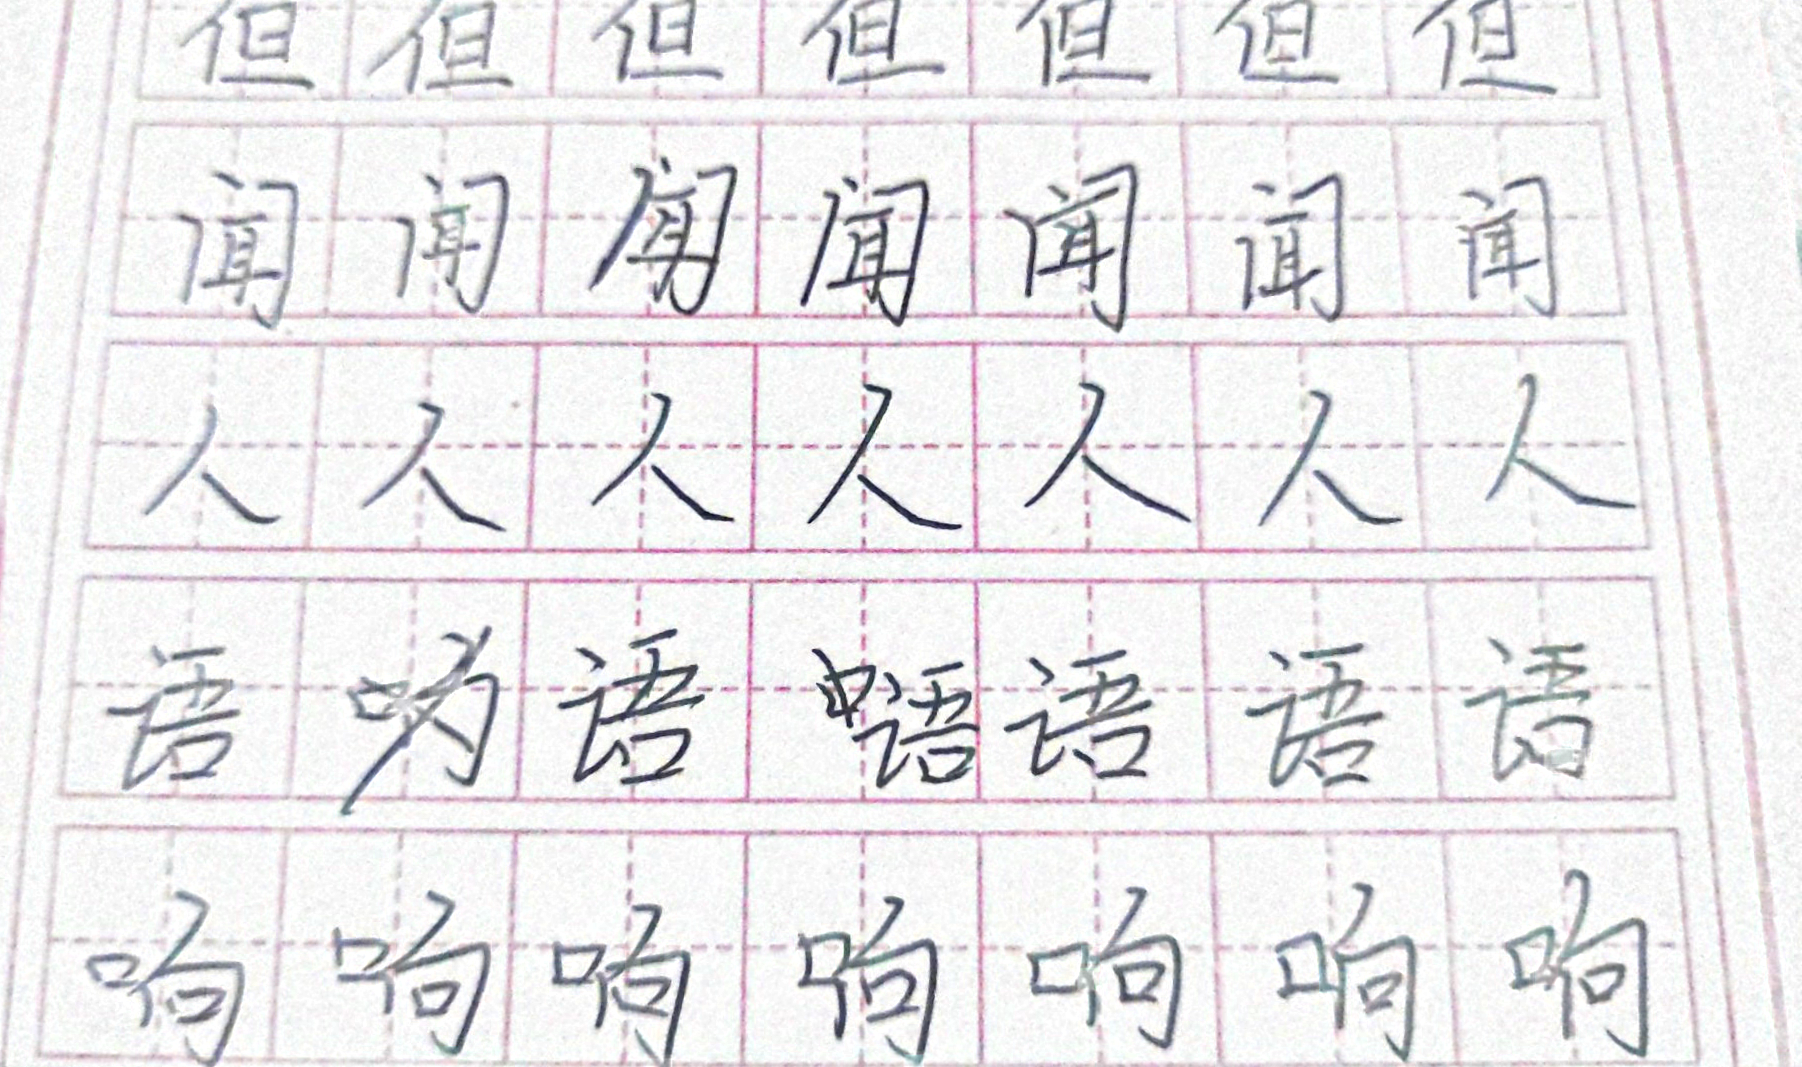 但但但但但但但
闻闻闻闻闻闻闻
人人人人人人人
语语语语语语
响响响响响响响